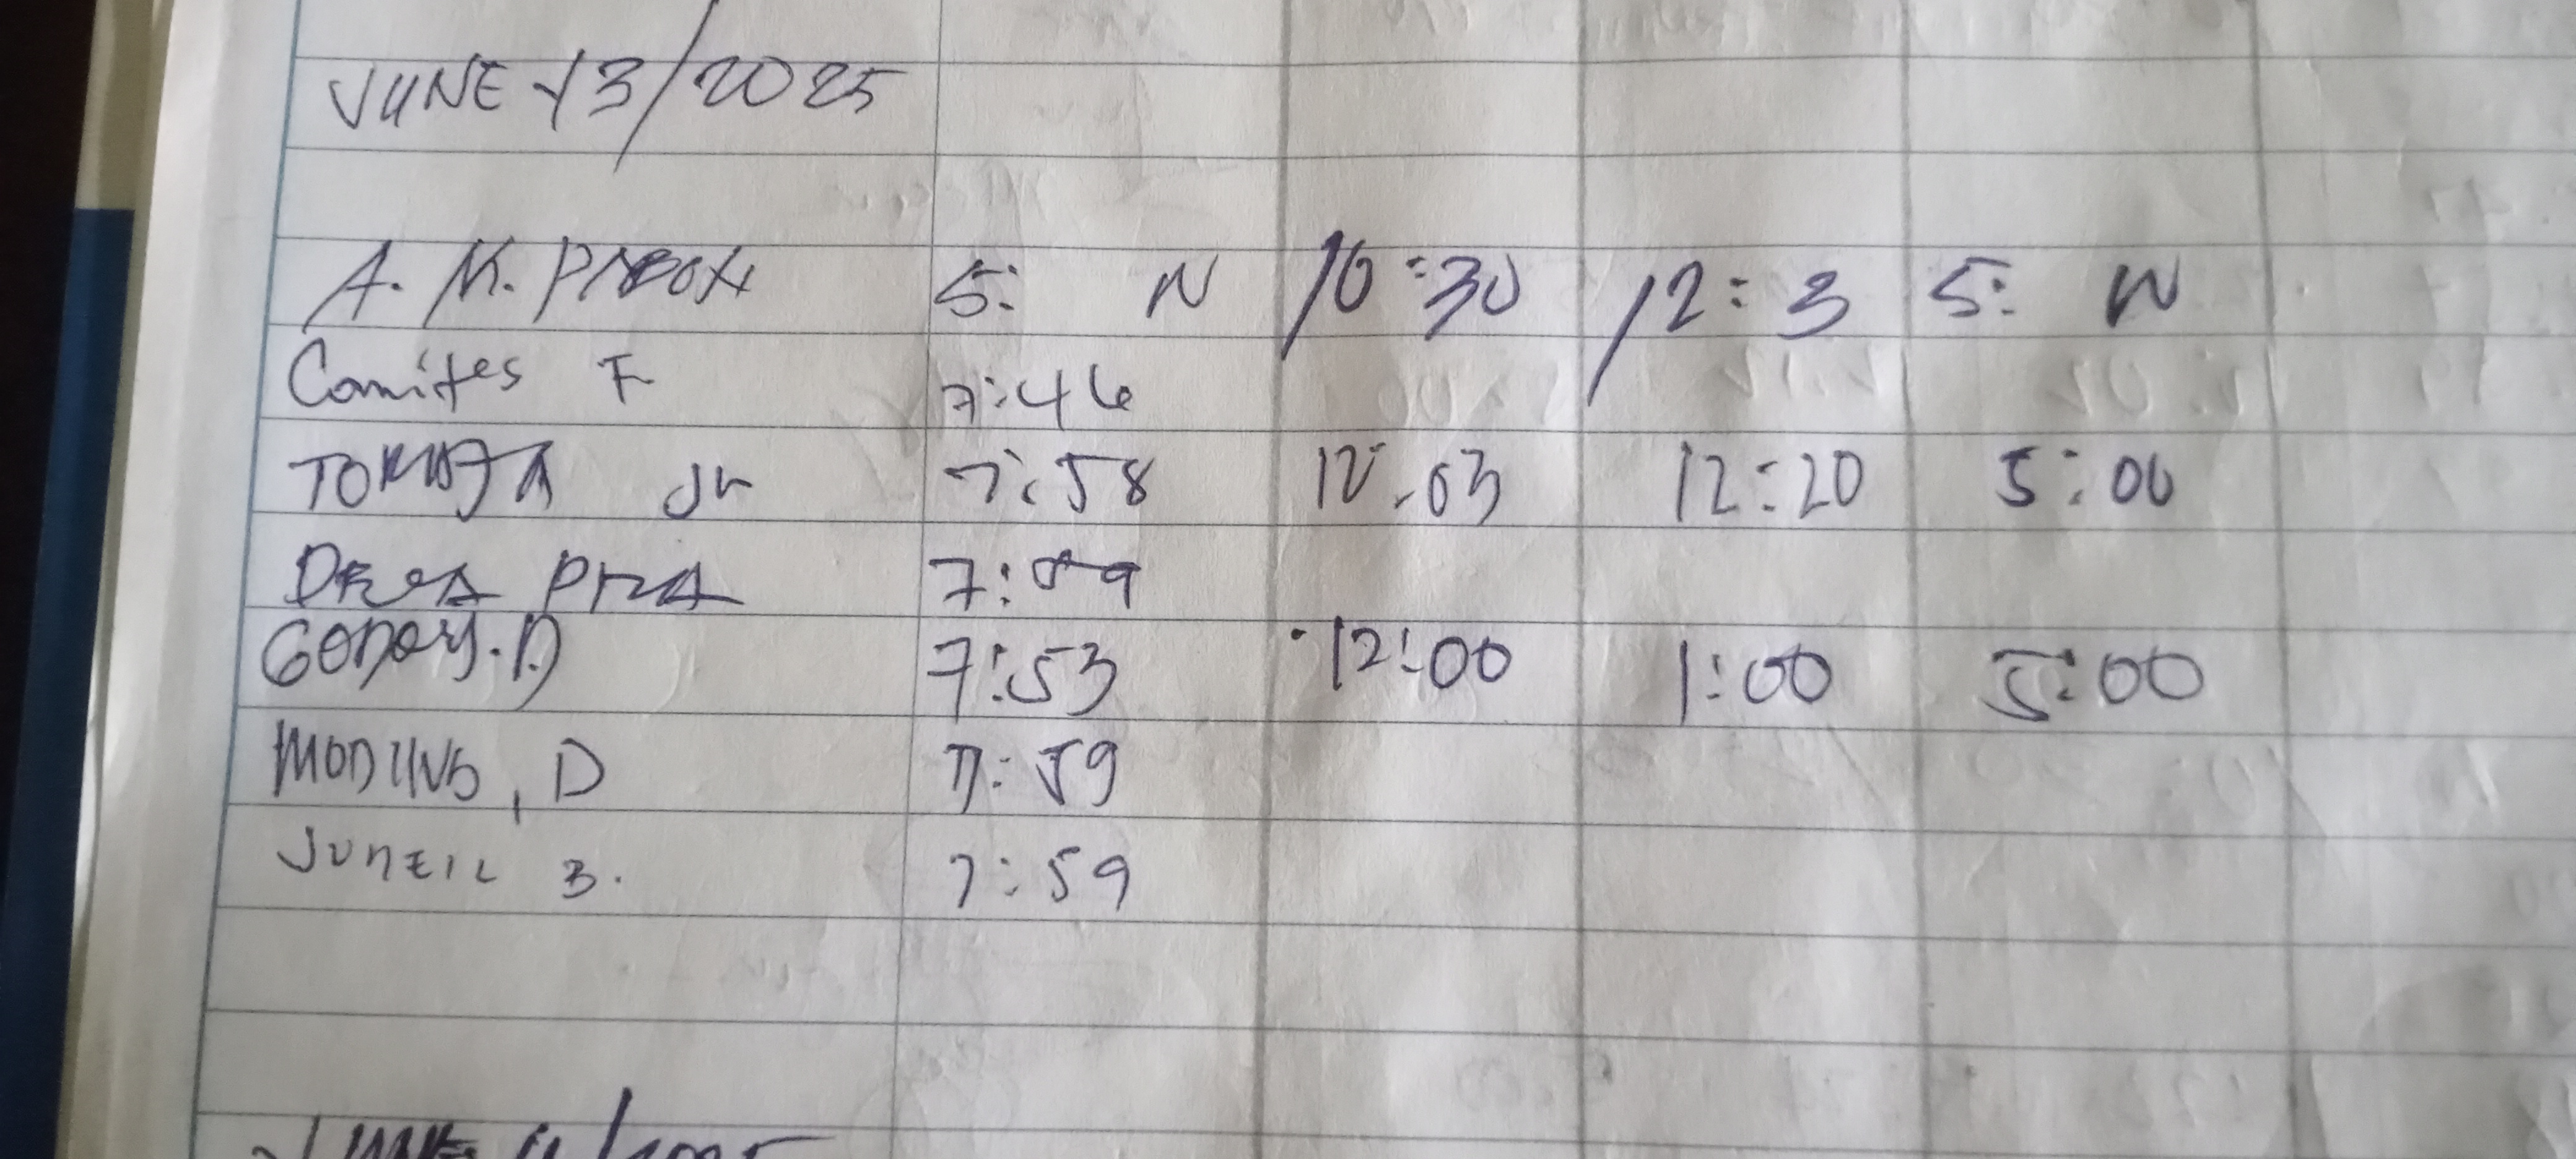 JUNE 13/2025
A. M. 5: N 10:30 12:3 5: N
Comites F 7:46
Jr 7:58 12:03 12:20 5:00
7:59
GODOY. D 7:53 12:00 1:00 5:00
D 7:59
JUNEIL B. 7:59